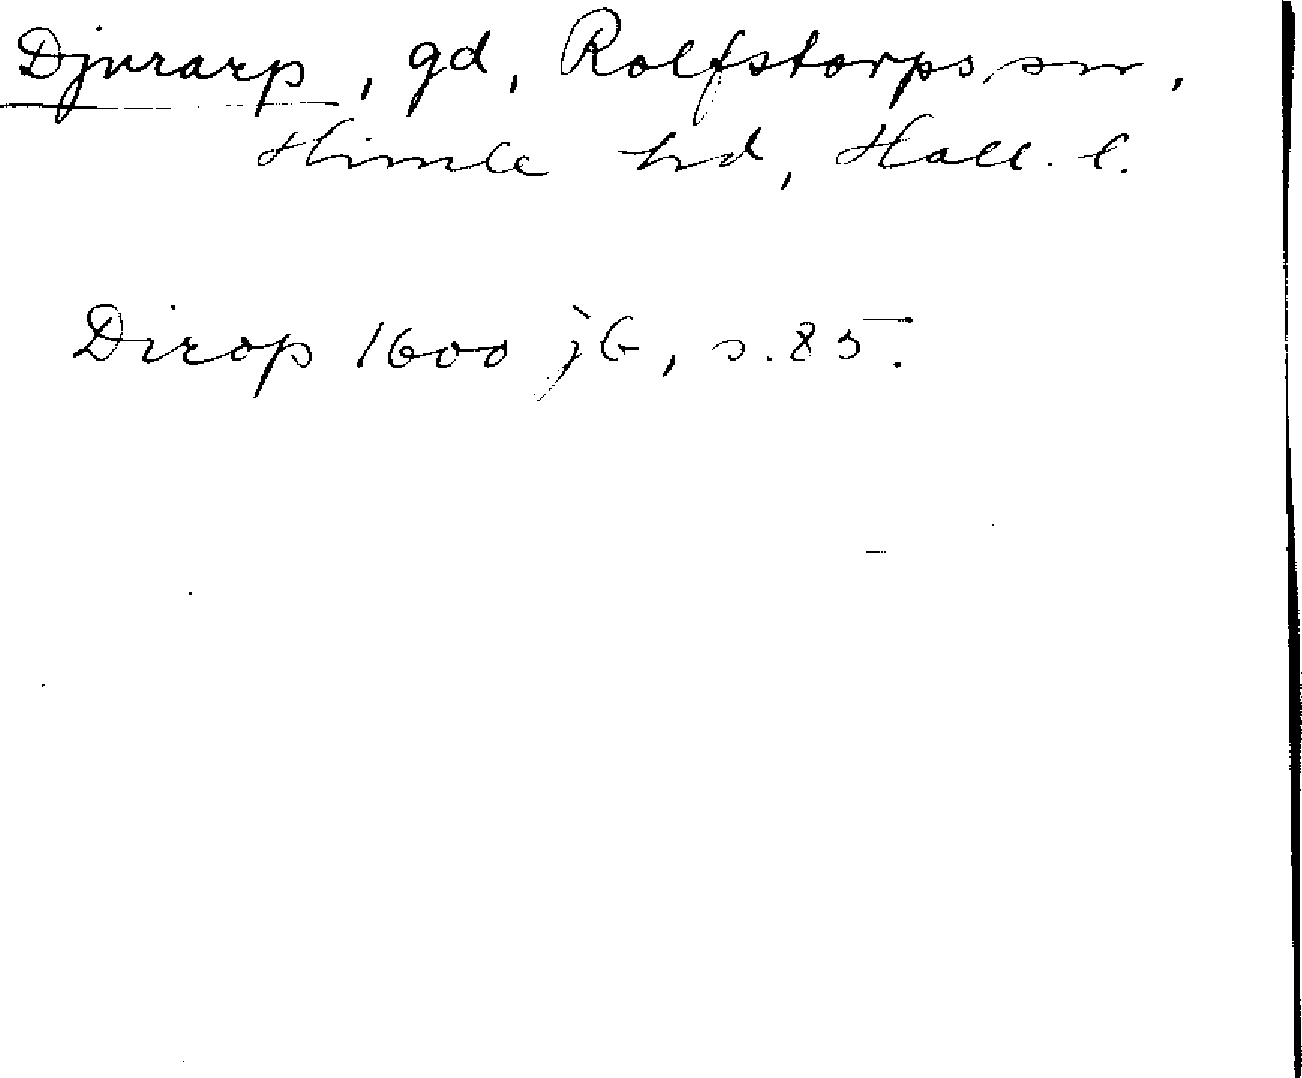 Djurarp, gd, Rolfstorps sn,
Himle hd, Hall. l.
Dirop 1600 jb, s. 85.